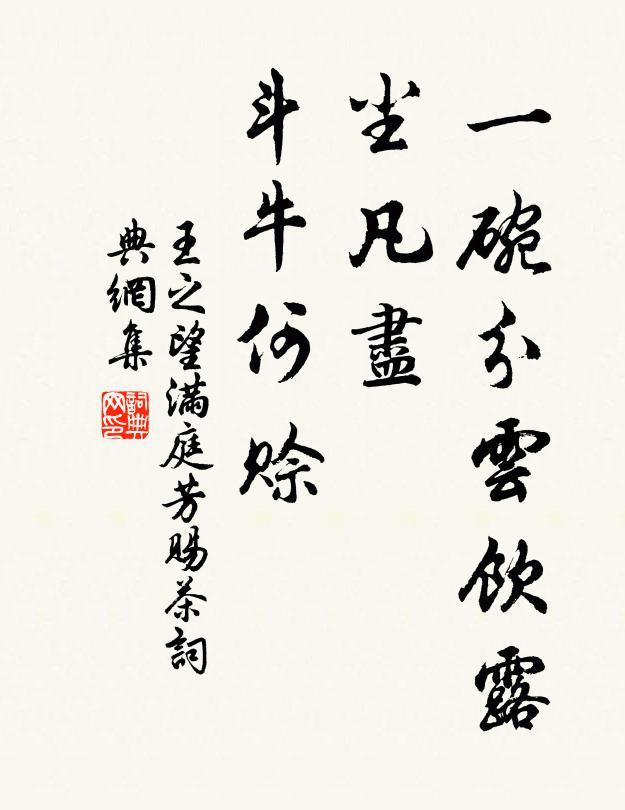 一碗分雲飲露
尘凡盡
斗牛何赊
王之望滿庭芳賜茶詞
典網集
詞典網印